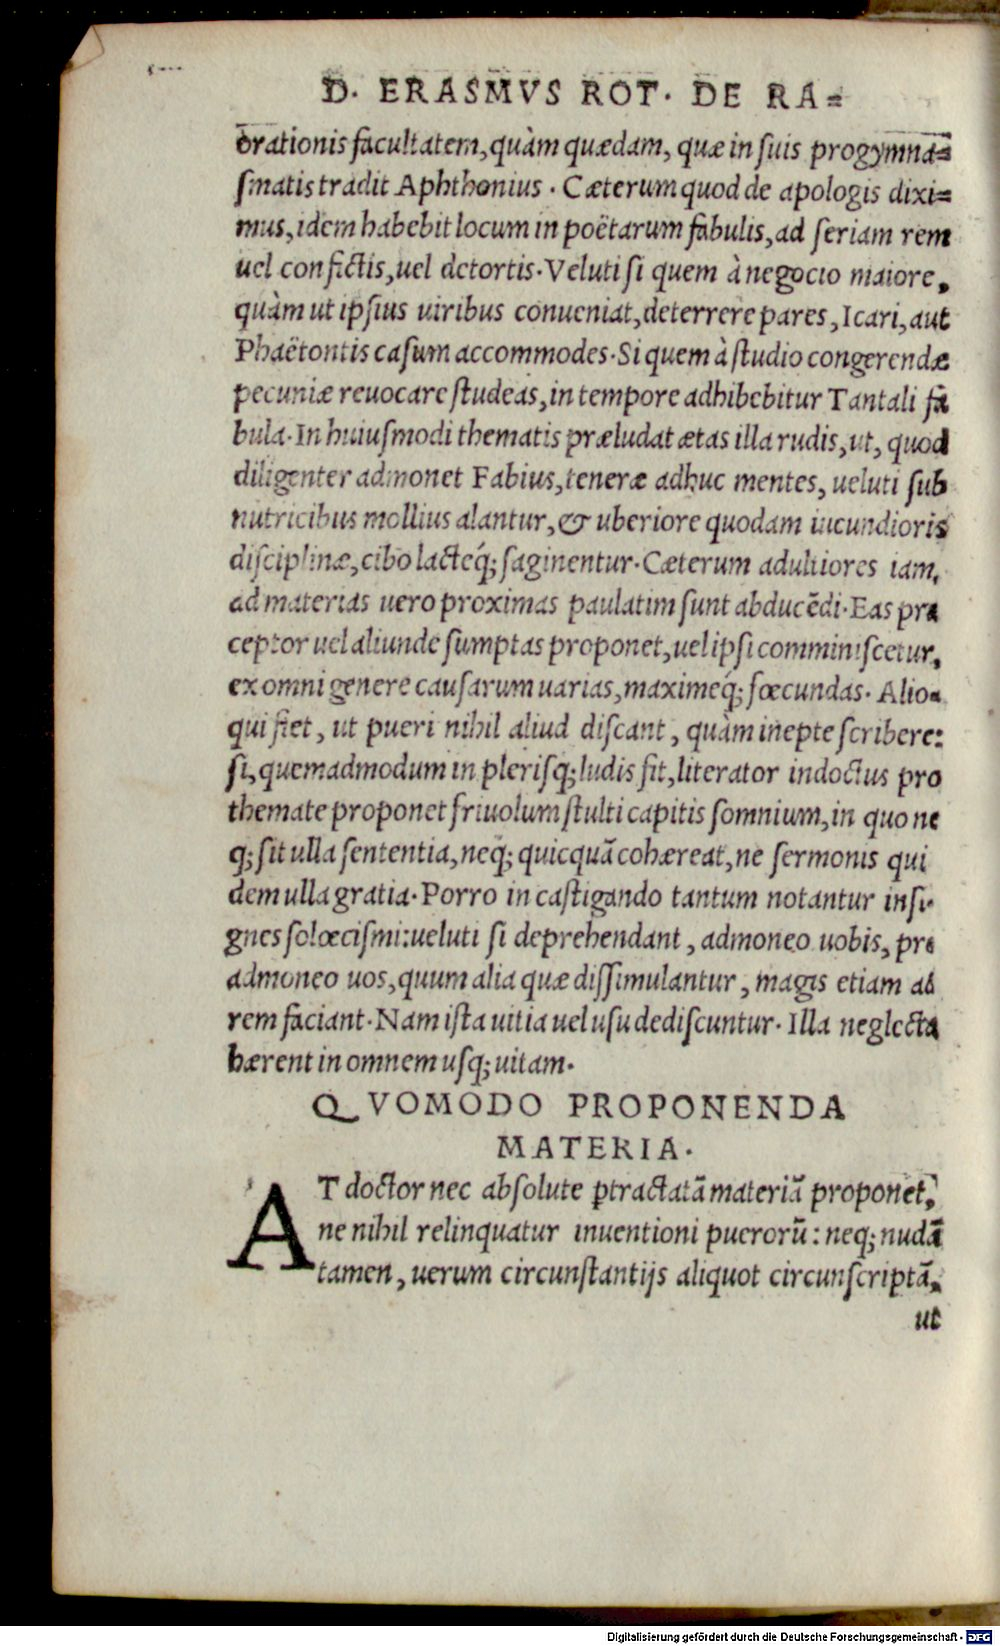 D. ERASMVS ROT. DE RA=
orationis facultatem, quàm quædam, quæ in suis progymna=
smatis tradit Aphthonius. Cæterum quod de apologis dixi=
mus, idem habebit locum in poëtarum fabulis, ad seriam rem
uel confictis, uel detortis. Veluti si quem à negocio maiore,
quàm ut ipsius uiribus conueniat, deterrere pares, Icari, aut
Phaëtontis casum accommodes. Si quem à studio congerendæ
pecuniæ reuocare studeas, in tempore adhibebitur Tantali fa
bula. In huiusmodi thematis præludat ætas illa rudis, ut, quod
diligenter admonet Fabius, teneræ adhuc mentes, ueluti sub
nutricibus mollius alantur, & uberiore quodam iucundioris
disciplinæ, cibo lacteq́; saginentur. Cæterum adultiores iam,
ad materias uero proximas paulatim sunt abducẽdi. Eas præ
ceptor uel aliunde sumptas proponet, uel ipsi comminiscetur,
ex omni genere causarum uarias, maximeq́; fœcundas. Alio=
qui fiet, ut pueri nihil aliud discant, quàm inepte scribere:
si, quemadmodum in plerisq; ludis fit, literator indoctus pro
themate proponet friuolum stulti capitis somnium, in quo ne
q; sit ulla sententia, neq; quicquã cohæreat, ne sermonis qui
dem ulla gratia. Porro in castigando tantum notantur insi=
gnes solœcismi: ueluti si deprehendant, admoneo uobis, pro
admoneo uos, quum alia quæ dissimulantur, magis etiam ad
rem faciant. Nam ista uitia uel usu dediscuntur. Illa neglecta
hærent in omnem usq; uitam.
QVOMODO PROPONENDA
MATERIA.
AT doctor nec absolute ꝑtractatã materiã proponet,
ne nihil relinquatur inuentioni puerorũ: neq; nudã
tamen, uerum circunstantijs aliquot circunscriptã,
ut
Digitalisierung gefördert durch die Deutsche Forschungsgemeinschaft - DFG